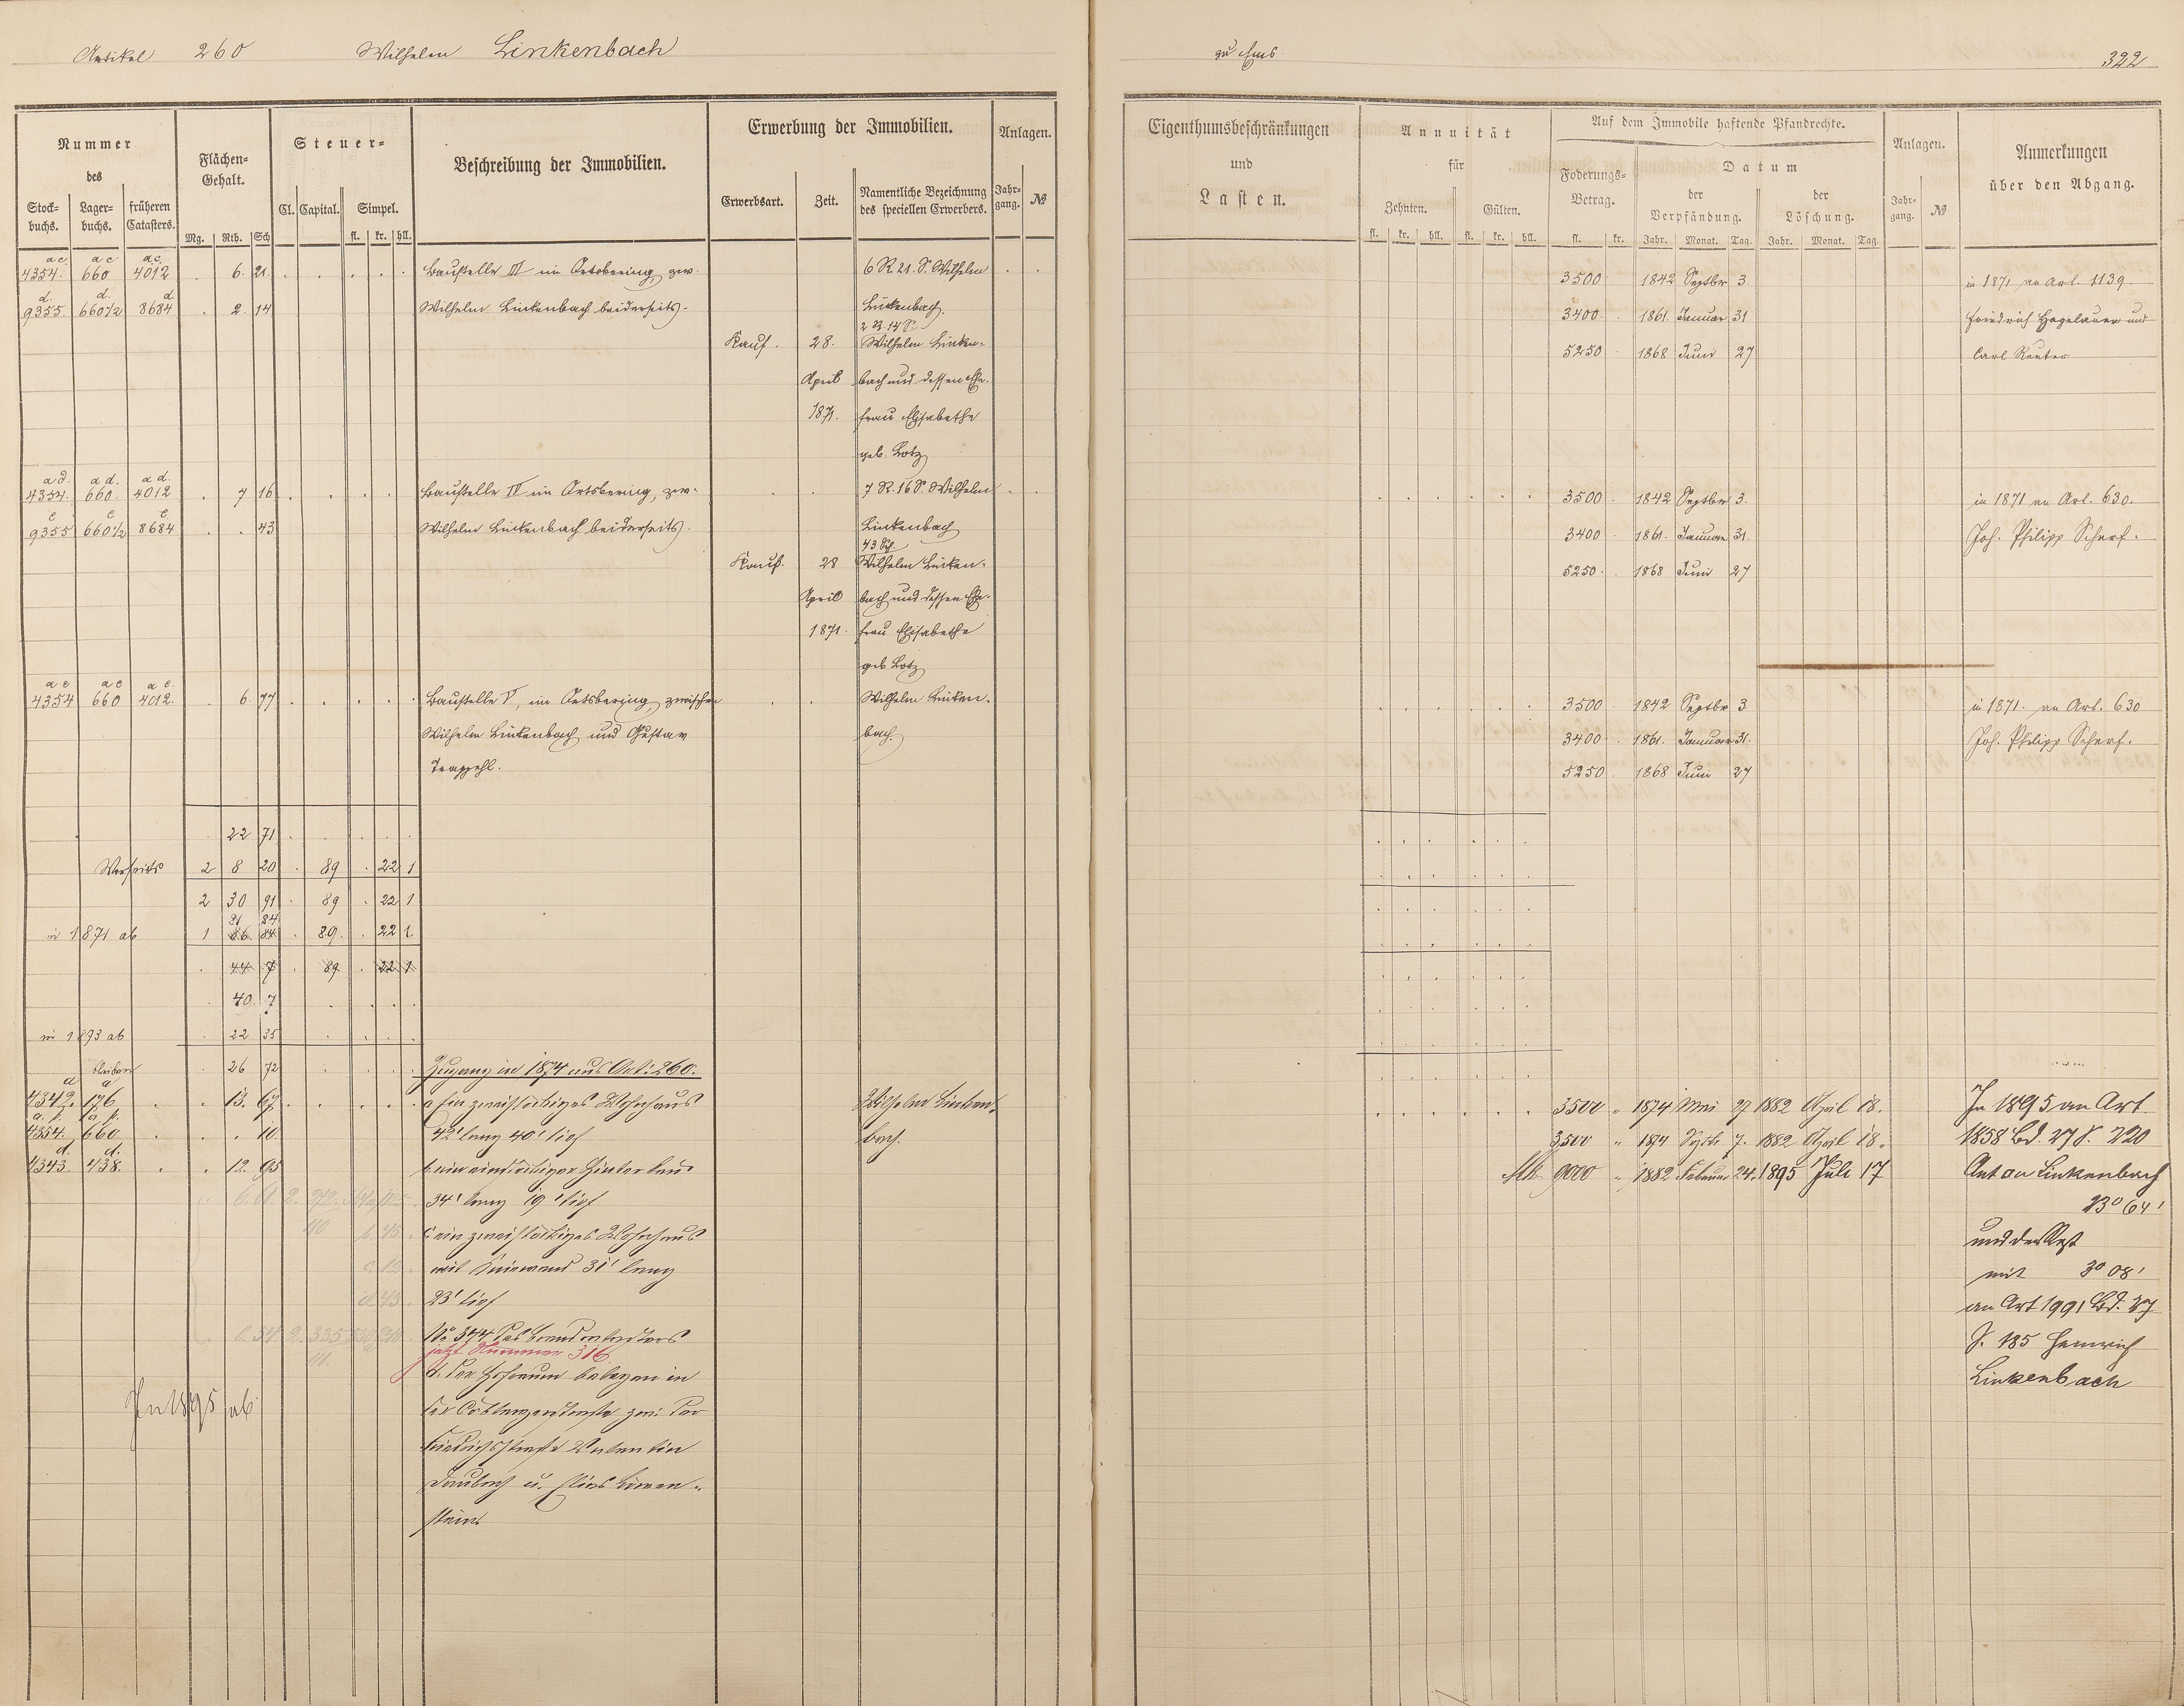 Artikel 260 Wilhelm Linkenbach
Nummer des
Stock-buchs. Lager-buchs. früheren Catasters.
Flächen-Gehalt.
Mg. Rth. Sch
Steuer-
Cl. Capital. Simpel.
fl. kr. hll.
Beschreibung der Immobilien.
Erwerbung der Immobilien.
Erwerbsart. Zeit. Namentliche Bezeichnung des speciellen Erwerbers.
Anlagen.
Jahr-gang. №
a c. a c a c.
4354. 660 4012 . 6. 21. Baustelle III im Ortsbering, zw. 6 R. 21. S. Wilhelm
d. d. d
9355. 660 1/2 8684 . 2. 14 Wilhelm Linkenbach beiderseits. Linkenbach.
2 R. 14 S.
Kauf. 28. Wilhelm Linken-
April bach und dessen Ehe-
1871. frau Elisabethe
geb. Lotz
a d. a d. a d.
4354. 660. 4012 . 7 16 Baustelle IV im Ortsbering, zw. 7 R. 16 S. Wilhelm
e e e
9355 660 1/2 8684 . . 43 Wilhelm Linkenbach beiderseits. Linkenbach
43 Sch.
Kauf. 28 Wilhelm Linken-
April bach und dessen Ehe-
1871. frau Elisabethe
geb Lotz
a e a e a e.
4354 660 4012. . 6. 77 Baustelle V, im Ortsbering, zwischen Wilhelm Linken-
Wilhelm Linkenbach und Gustav bach.
Trapzehl.
. 22 71
Vorseits 2 8 20 . 89 . 22 1
2 30 91 . 89 . 22 1
81 84
in 1871 ab 1 86. 84. . 89. . 22 1.
. 44 7 . 89 . 22 1
. 49. 7
in 1893 ab . 22 35
bleiben . 26 72 Zugang in 1874 aus Art: 260.
4342. 196 . . 13. 67 a ein zweistöckiges Wohnhaus Wilhelm Linken-
4354. 660. . . . 10. 42' lang 40' tief bach.
d. d.
4343. 438. . . 12. 95 b. ein einstöckiger Hinterbau
34' lang 19' tief
c. ein zweistöckiges Wohnhaus
mit 31' lang
23' tief
No 344 des Brandcatasters
jetzt Nummer 316
d. der Hofraum belegen in
der Coblenzerstrasse zw: der
Friedrichsstrasse Valentin
Daubach u. Elias Löwen-
stein
In 1895 ab
zu Ems. 322
Eigenthumsbeschränkungen und Lasten.
Annuität für
Zehnten. Gülten.
fl. kr. hll. fl. kr. hll.
Auf dem Immobile haftende Pfandrechte.
Foderungs-Betrag.
fl. kr.
Datum
der Verpfändung. der Löschung.
Jahr. Monat. Tag. Jahr. Monat. Tag.
Anlagen.
Jahr-gang. №
Anmerkungen über den Abgang.
3500 1842 Septbr 3. in 1871 an Art. 1139
3400. 1861. Januar 31. Friedrich Hagelauer und
5250 1868 Juni 27 Carl Reuter
3500 1842 Septbr 3. in 1871 an Art. 630.
3400 1861. Januar 31. Joh. Philipp Scherf.
5250. 1868 Juni 27
3500 1842 Septbr 3 in 1871. an Art. 630
3400 1861. Januar 31. Joh. Philipp Scherf.
5250 1868 Juni 27
3500 " 1874 Mai 27 1882 April 18. In 1895 an Art
3500 " 1874 Septb 7. 1882 April 18. 1858 Bd. 27 S. 220
Mk 9000 " 1882 Februar 24. 1895 Juli 17 Anton Linkenbach
23° 64'
und der Rest
mit 3° 08'
an Art 1991 Bd. 37
S. 185 Heinrich
Linkenbach